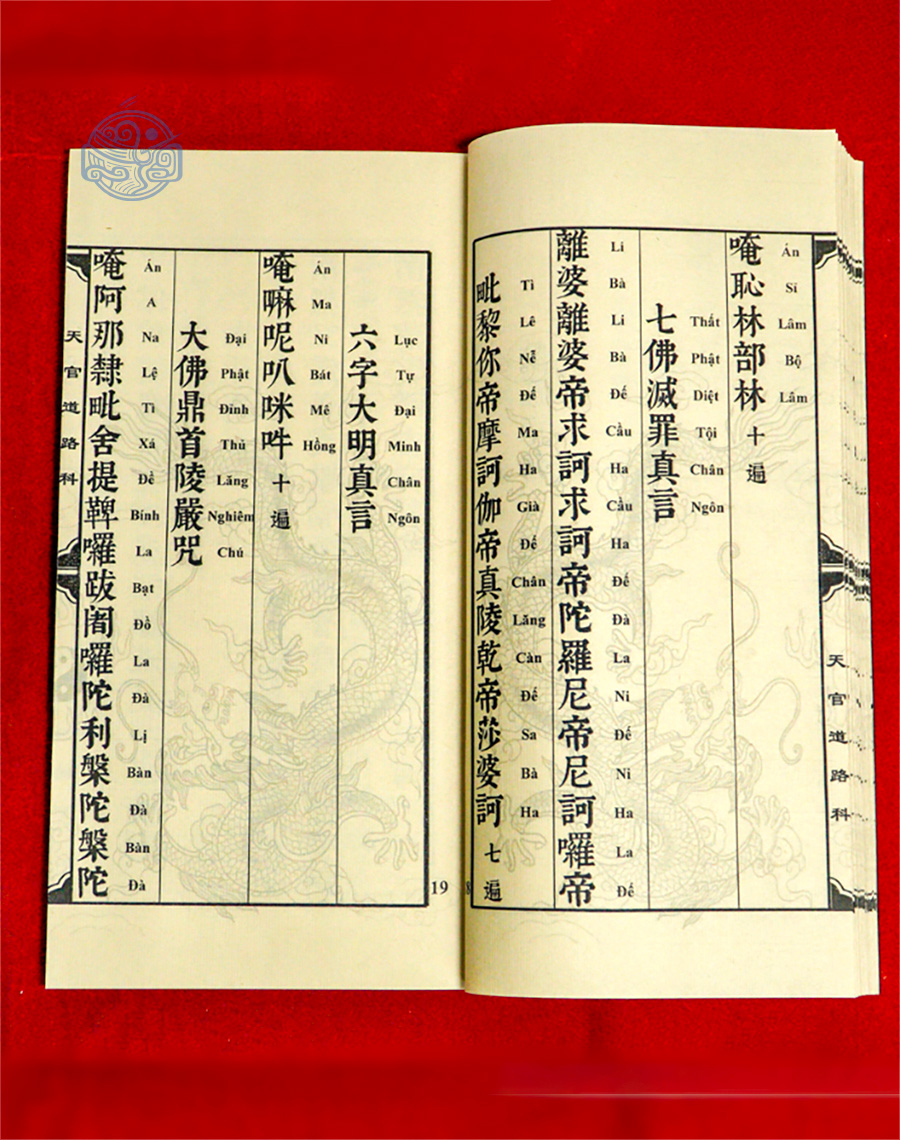 唵恥林部林十遍
Án Sỉ Lâm Bộ Lâm
七佛滅罪真言
Thất Phật Diệt Tội Chân Ngôn
離婆離婆帝求訶求訶帝陀羅尼帝尼訶囉帝
Li Bà Li Bà Đế Cầu Ha Cầu Ha Đế Đà La Ni Đế Ni Ha La Đế
毗黎你帝摩訶伽帝真陵乾帝莎婆訶七遍
Tì Lê Nễ Đế Ma Ha Già Đế Chân Lăng Càn Đế Sa Bà Ha
天官道路科
8
六字大明真言
Lục Tự Đại Minh Chân Ngôn
唵嘛呢叭咪吽十遍
Án Ma Ni Bát Mê Hồng
大佛鼎首陵嚴咒
Đại Phật Đỉnh Thủ Lăng Nghiêm Chú
唵阿那隸毗舍提鞞囉跋闍囉陀利槃陀槃陀
Án A Na Lệ Tì Xá Đề Bính La Bạt Đồ La Đà Lị Bàn Đà Bàn Đà
天官道路科
19